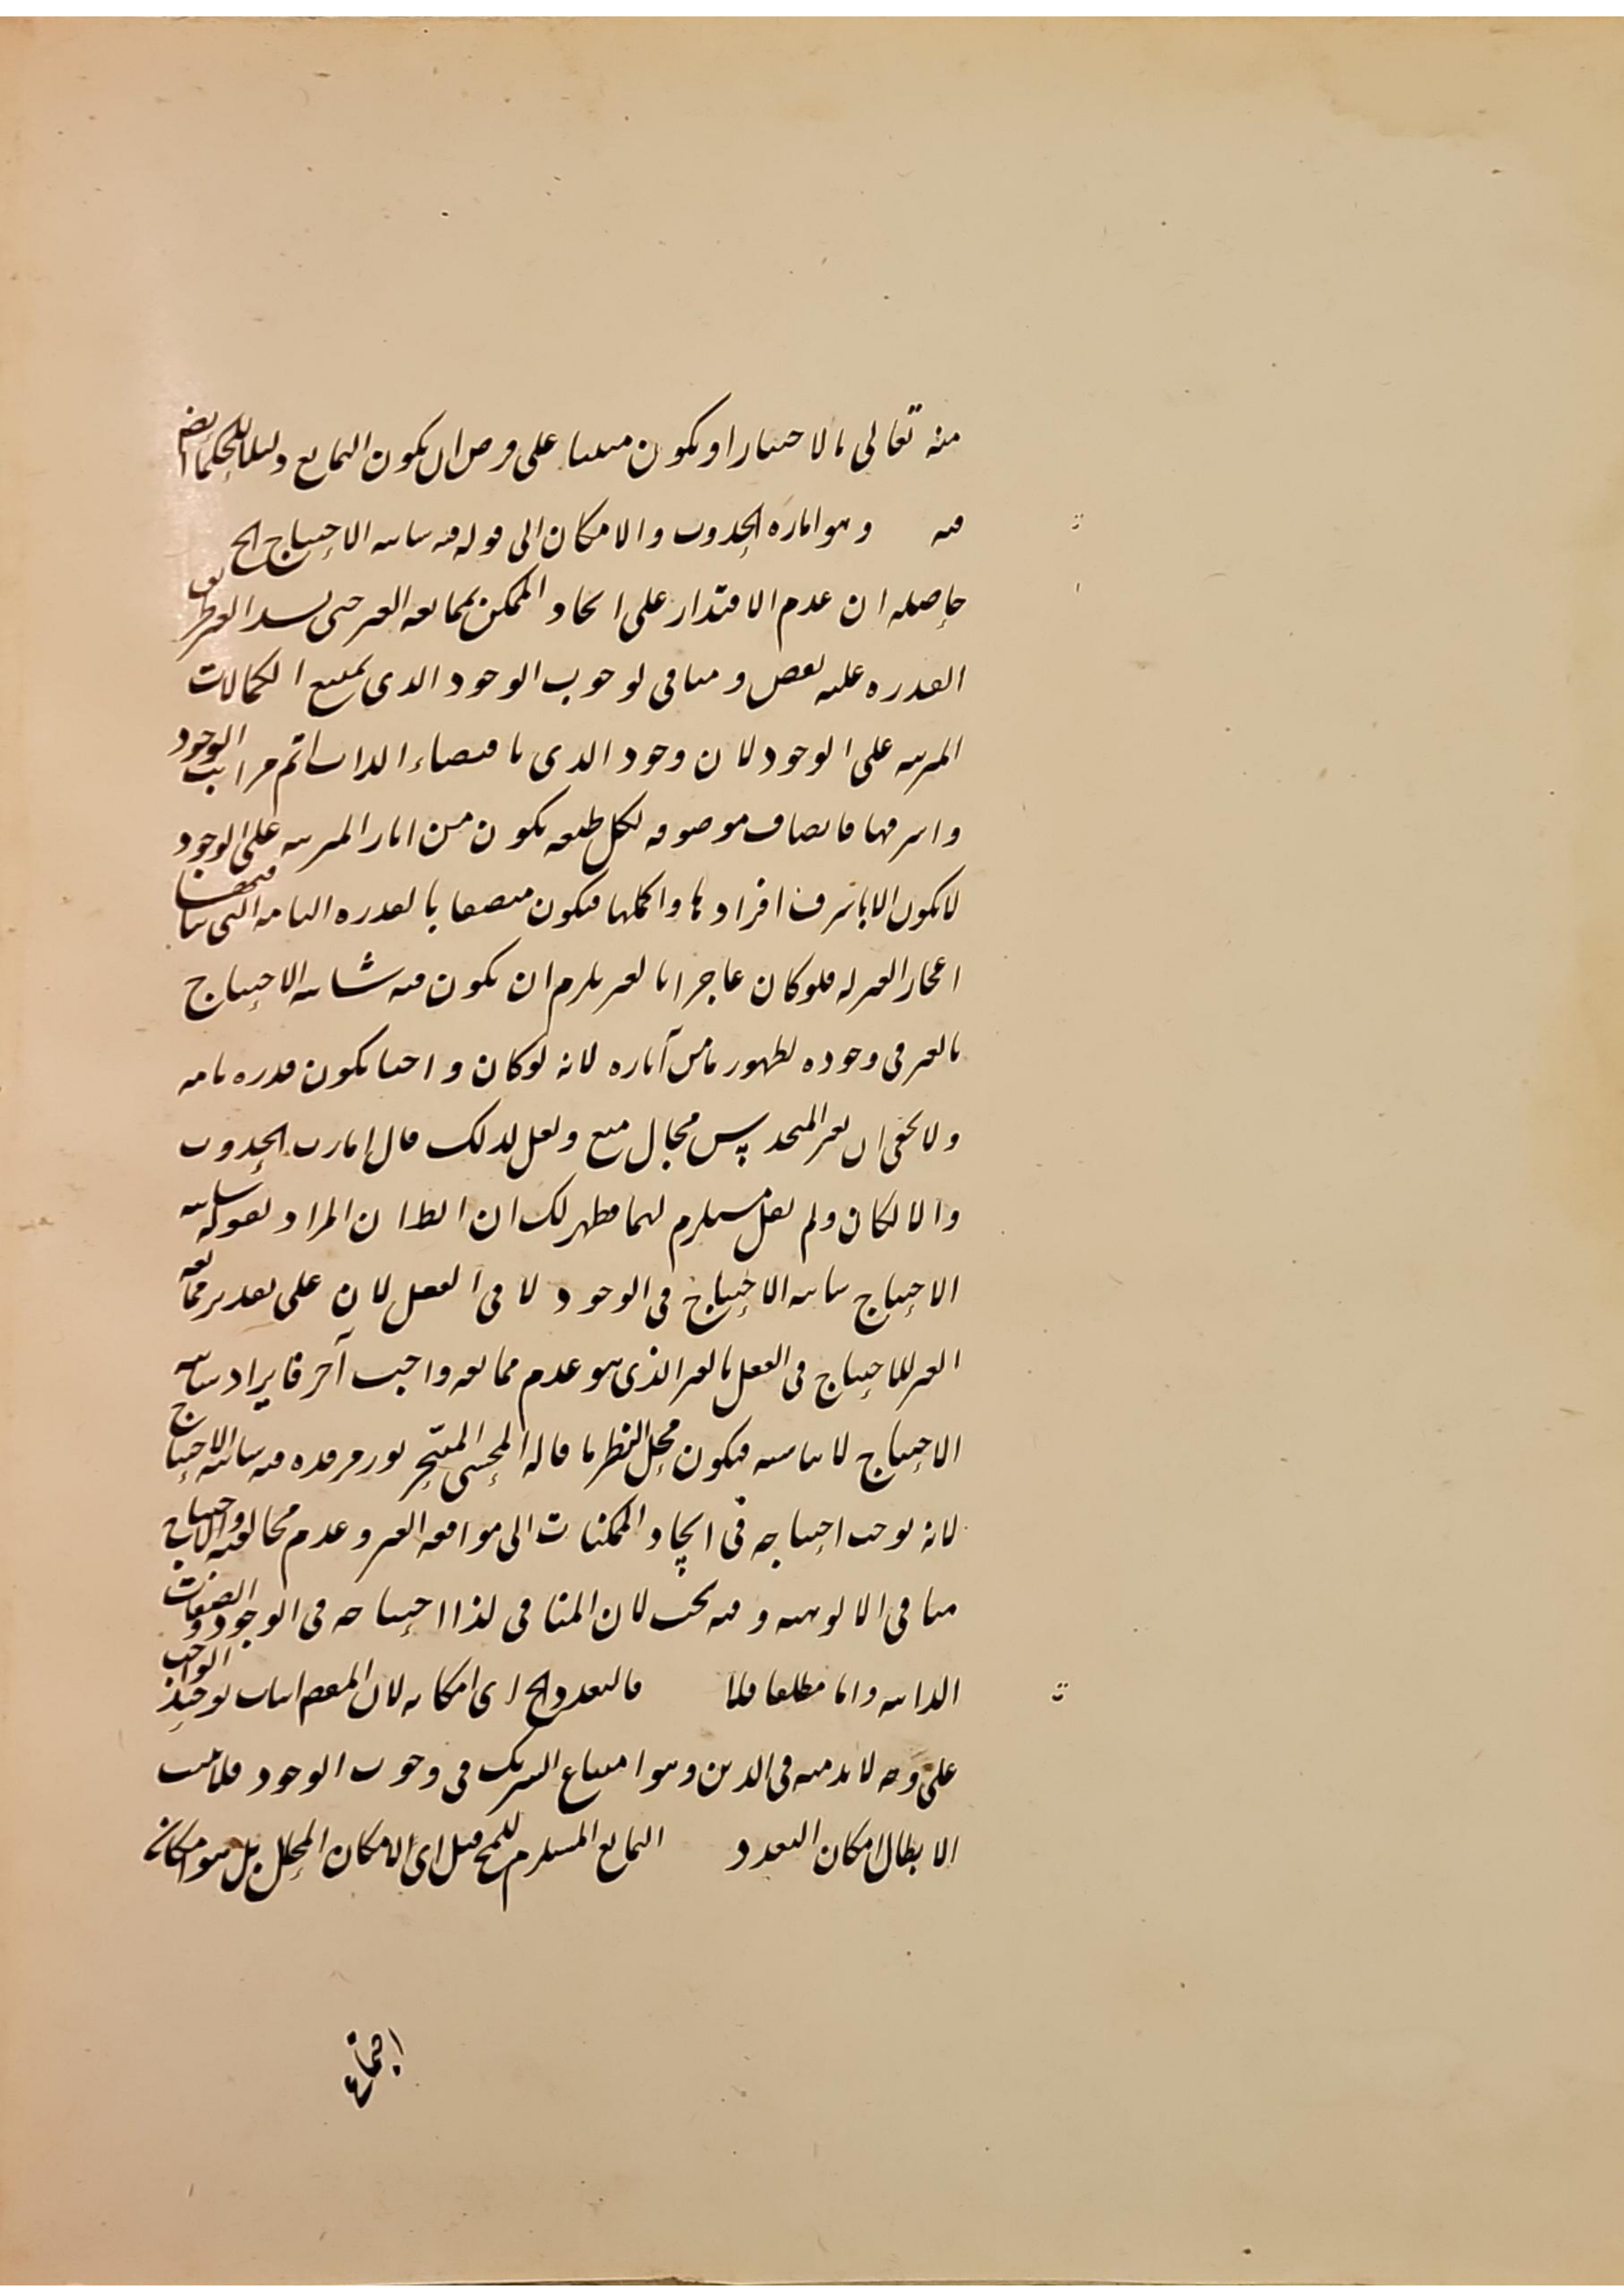 منه تعالى بالاختيار او يكون مبنيا على فرض ان يكون التمانع دليلا للحكماء ايضم
فيه وهو امارة الحدوث والامكان الى قوله فيه شائبة الاحتياج الخ
حاصله ان عدم الاقتدار على ايجاد الممكن بممانعة الغير حتى يسد الغير طريق
القدرة عليه نقص ومنافى لوجوب الوجود الذى يمنع الكمالات
المترتبة على الوجود لان وجود الذى باقتضاء الذات اتم مراتب الوجود
واشرفها فاتصاف موصوفه لكل طبيعة يكون من آثار المترتبة على الوجود
لايكون الا باشرف افرادها واكملها فيكون متصفا بالقدرة التامة التى
اعجاز الغير له فلو كان عاجزا بالغير يلزم ان يكون فيه شائبة الاحتياج
بالغير فى وجوده لظهور نقص آثاره لانه لوكان واجبا يكون قدرة تامة
ولا يخفى ان مجال منع ولعل لذلك قال امارت الحدوث
والامكان ولم يقل مستلزم لهما فظهر لك ان الظ ان المراد بقوله شائبة
الاحتياج شائبة الاحتياج فى الوجود لا فى الفعل لان على تقدير ممانعة
الغير للاحتياج فى الفعل بالغير الذى هو عدم ممانعة واجب آخر فايراد شائبة
الاحتياج لا يناسبه فيكون محل النظر ما قاله المحشى المتبحر نور مرقده فيه شائبة الاحتياج
لانه يوجب احتياجه فى ايجاد الممكنات الى موافقة الغير وعدم مخالفته والاحتياج
منافى الالوهية وفيه بحث لان المنافى لذا احتياجه فى الوجود والصفات
الذاتية واما مطلقا فلا فالتعدد الخ اى امكانه لان المقصم اثبات توحيد الواجب
على وجه لابد منه فى الدين وهو امتناع الشريك فى وجوب الوجود فلا يثبت
الا بطال امكان التعدد التمانع المستلزم للمح قيل اى الامكان المحل بل هو امكان
اجتماع